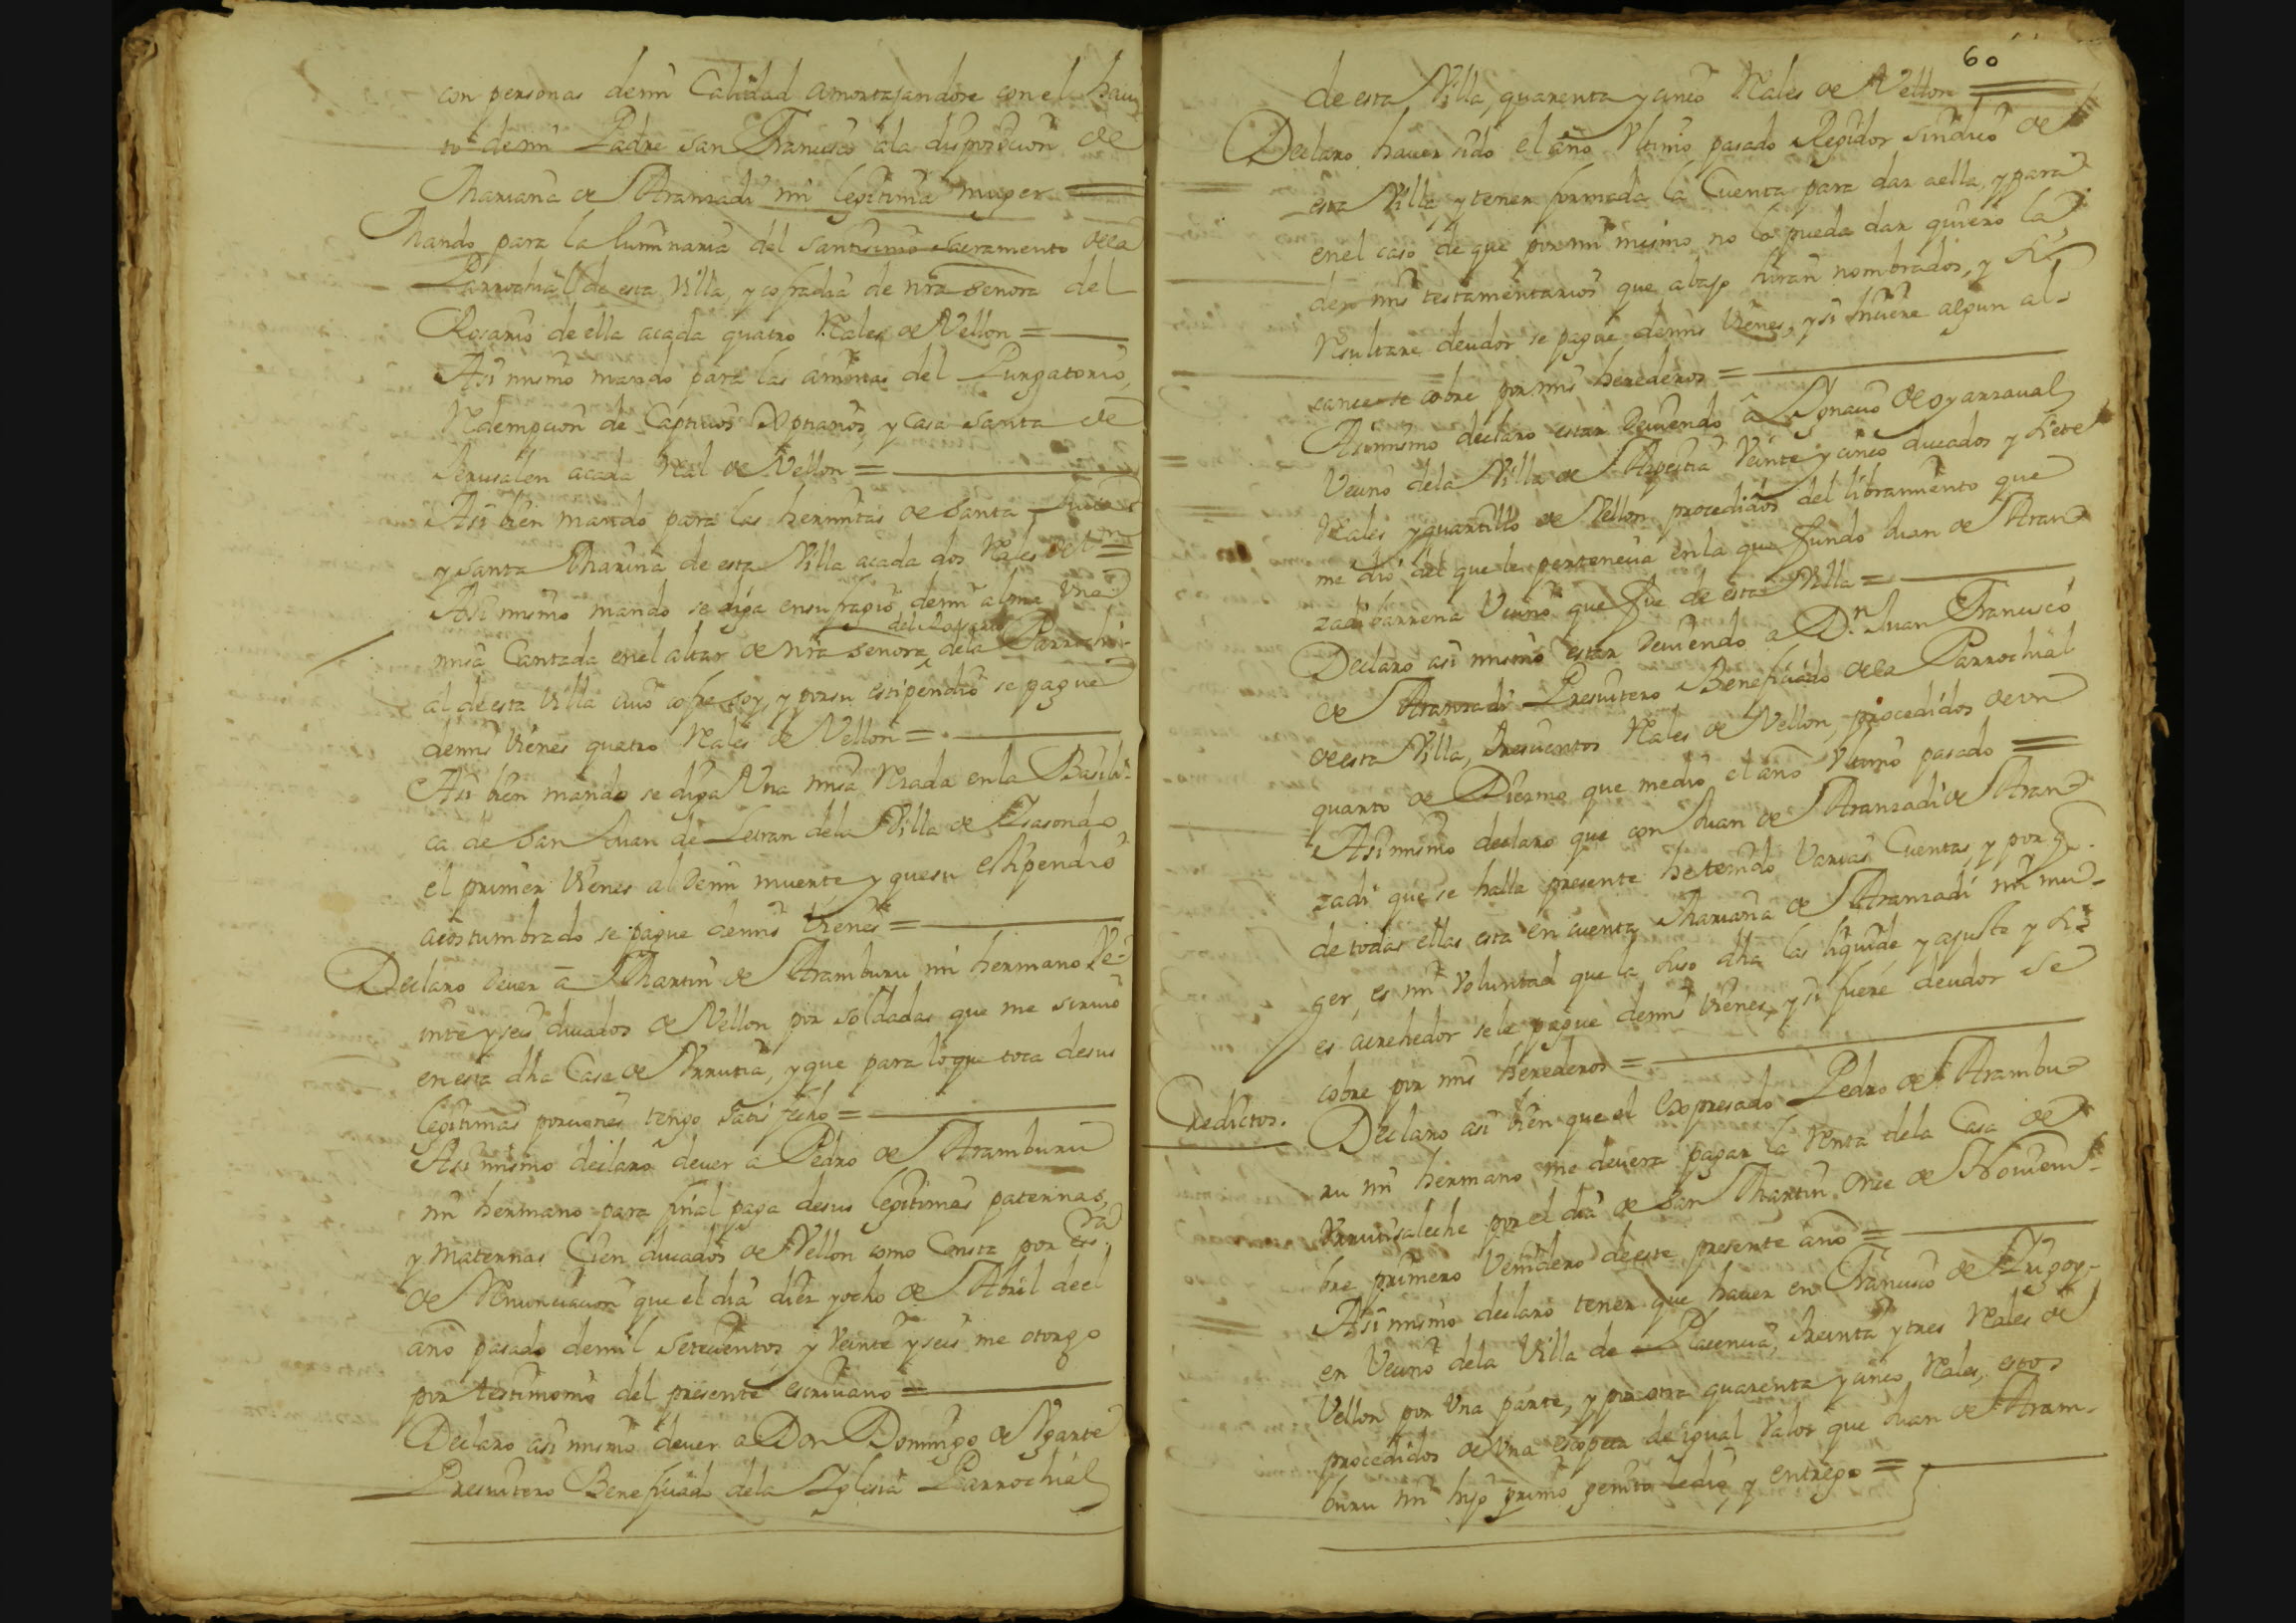 con personas demi Calidad amortajandose con el havi
to demi Padre San Francisco ala disposicion de
Mariana de Aranzadi mi legitima muger =
Mando para la luminaria del Santisimo Sacramento dela
Parrochial de esta Villa, y cofradia de nra Senora del
Rosario de ella acada quatro Reales de Vellon =
Asi mismo mando para las animas del Purgatorio,
Redempcion de Captivos Xptianos, y Casa Santa de
Jerusalen acada Real de Vellon =
Asi bien mando para las hermitas de Santa
y Santa Marina de esta Villa acada dos Reales de Vn =
Asi mismo mando se diga en sufragio demi alma Una
misa Cantada enel altar de nra Senora del Rosario dela Parrochi-
al de esta Villa cuio cofre soy, y por su estipendio se pague
demis vienes quatro Reales de Vellon =
Asi bien mando se diga Una misa Rezada enla Basili-
ca de San Juan de Letran dela Villa de Isasondo
el primer Vienes al demi muerte y quesu estipendio
acostumbrado se pague demis Vienes =
Declaro dever â Martin de Aramburu mi hermano Ve-
inte y seis ducados de Vellon por soldadas que me sirvio
en esta dha Casa de Urrutia, y que para lo que toca desus
legitimas porciones tengo satisfecho =
Asi mismo declaro dever a Pedro de Aramburu
mi hermano para final paga desus legitimas paternas,
y maternas Cien ducados de Vellon como Consta por essra
de Renunciacion que el dia diez y ocho de Abril del
año pasado demil setecientos y Veinte y seis me otorgo
por testimonio del presente escrivano =
Declaro asi mismo dever a Don Domingo de Ygarte
Presvitero Beneficiado dela Iglesia Parrochial
60
de esta Villa, quarenta y cinco Reales de Vellon =
Declaro haver sido el año Ultimo pasado Regidor Sindico de
esta Villa, y tener formada la Cuenta para dar aella, y para
enel caso de que por mi mismo no la pueda dar quiero la
den mis testamentarios que abajo hiran nombrados, y si
Resultare deudor se pague demis Vienes, y si huviere algun al-
cance se cobre por mis herederos =
Asimismo declaro estar deviendo â Ignacio de Oyarzaval
Vecino dela Villa de Azpeitia Veinte y cinco ducados y siete
Reales y quartillo de Vellon procedidos del libramiento que
me dio del que le pertenecia enla que fundo Juan de Aran
zadibarrena Vecino que fue de esta Villa =
Declaro asi mismo estar deviendo a Dn. Juan Francisco
de Aranzadi Presvitero Beneficiado dela Parrochial
de esta Villa, trescientos Reales de Vellon, procedidos de un
quarto de Diezmo que medio el año Ultimo pasado =
Asimismo declaro que con Juan de Aranzadi de Aran
zadi que se halla presente he tenido Varias Cuentas, y por q.
de todas ellas esta en cuenta Mariana de Aranzadi mi mu-
ger, es mi Voluntad que la suso dha las liquide, y ajuste y si
es acrehedor sele pague demis Vienes, y si fuere deudor se
cobre por mis herederos =
Credictos.
Declaro asi bien que el expresado Pedro de Arambu
ru mi hermano me devera pagar la Renta dela Casa de
Urrutisaleche por el dia de San Martin Once de Noviem-
bre primero Venidero de este presente año =
Asi mismo declaro tener que haver en Francisco de Irigoy-
en Vecino dela Villa de Placencia, treinta y tres Reales de
Vellon por Una parte, y por otra quarenta y cinco Reales, estos
procedidos de Una escopeta de igual Valor que Juan de Aram-
buru mi hijo primo genito ledio, y entrego =